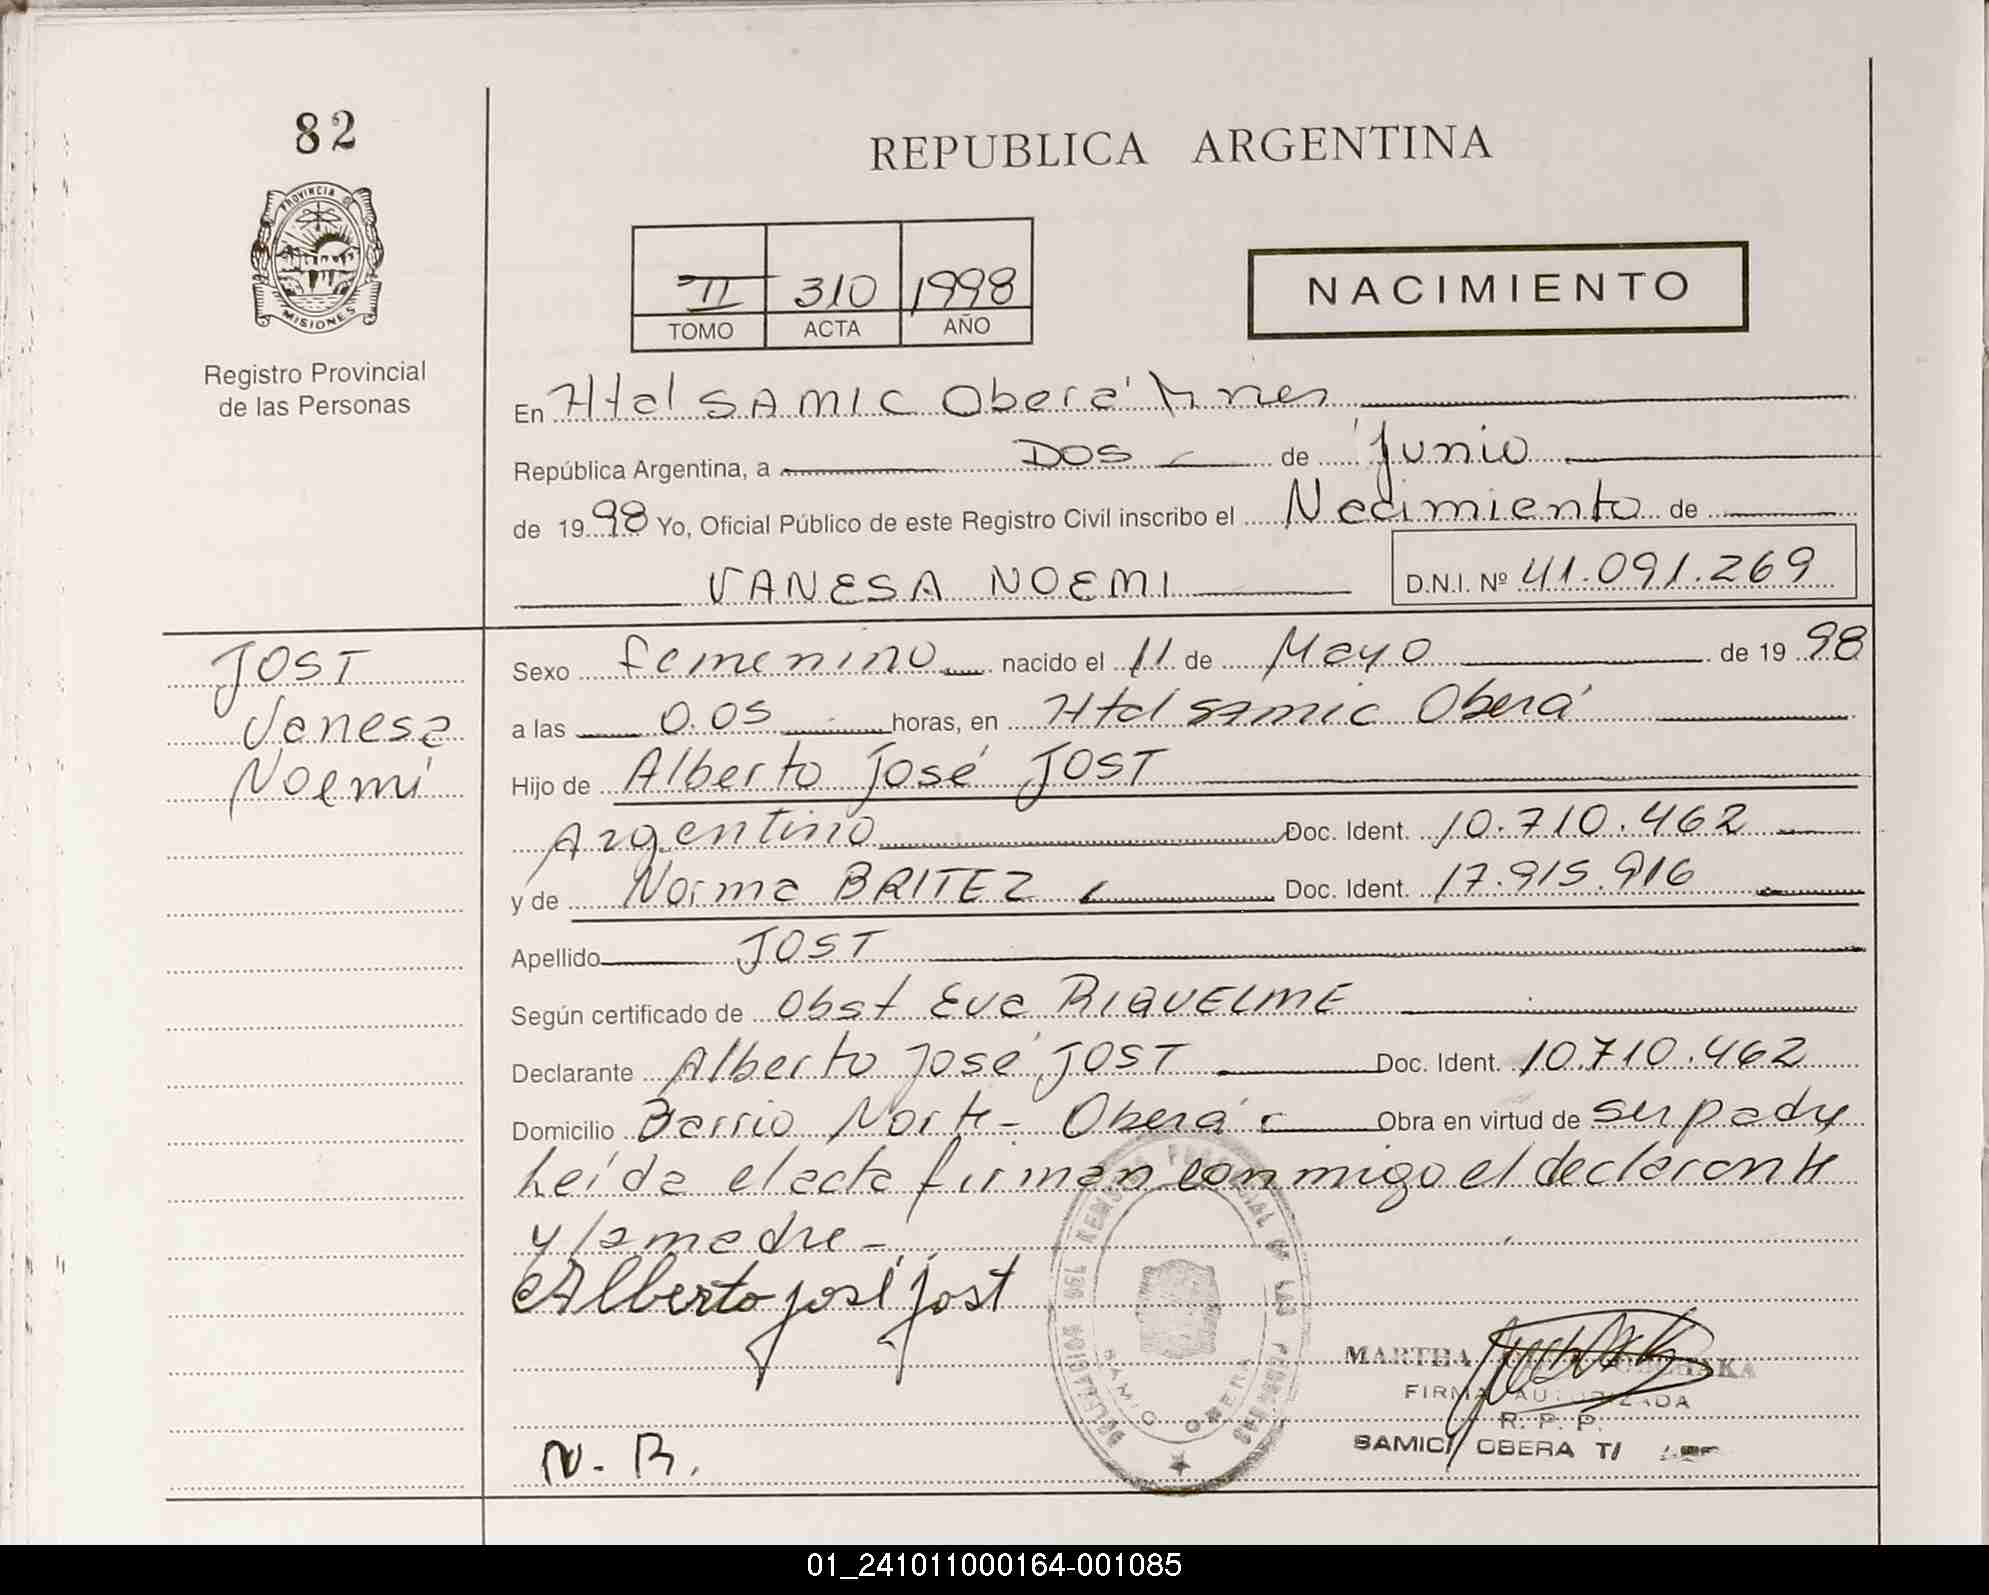 82
REPUBLICA ARGENTINA
PROVINCIA
MISIONES
II 310 1998
TOMO ACTA AÑO
NACIMIENTO
Registro Provincial
de las Personas
En Htal SAMIC Oberá Mnes
República Argentina, a DOS de Junio
de 1998 Yo, Oficial Público de este Registro Civil inscribo el Nacimiento de
VANESA NOEMI D.N.I. Nº 41.091.269
JOST
Vanesa
Noemí
Sexo femenino nacido el 11 de Mayo de 1998
a las 0.05 horas, en Htal SAMIC Oberá
Hijo de Alberto José JOST
Argentino Doc. Ident. 10.710.462
y de Norma BRITEZ Doc. Ident. 17.915.916
Apellido JOST
Según certificado de Obst Eva RIQUELME
Declarante Alberto José JOST Doc. Ident. 10.710.462
Domicilio Barrio Norte - Oberá Obra en virtud de ser padre
Leída el acta firman conmigo el declarante
y la madre -
Alberto josé jost
DELEGACION DEL REGISTRO PROVINCIAL DE LAS PERSONAS
SAMIC OBERA
MARTHA
FIRMA AUTORIZADA
R. P. P.
SAMIC OBERA
N. B.
01_241011000164-001085